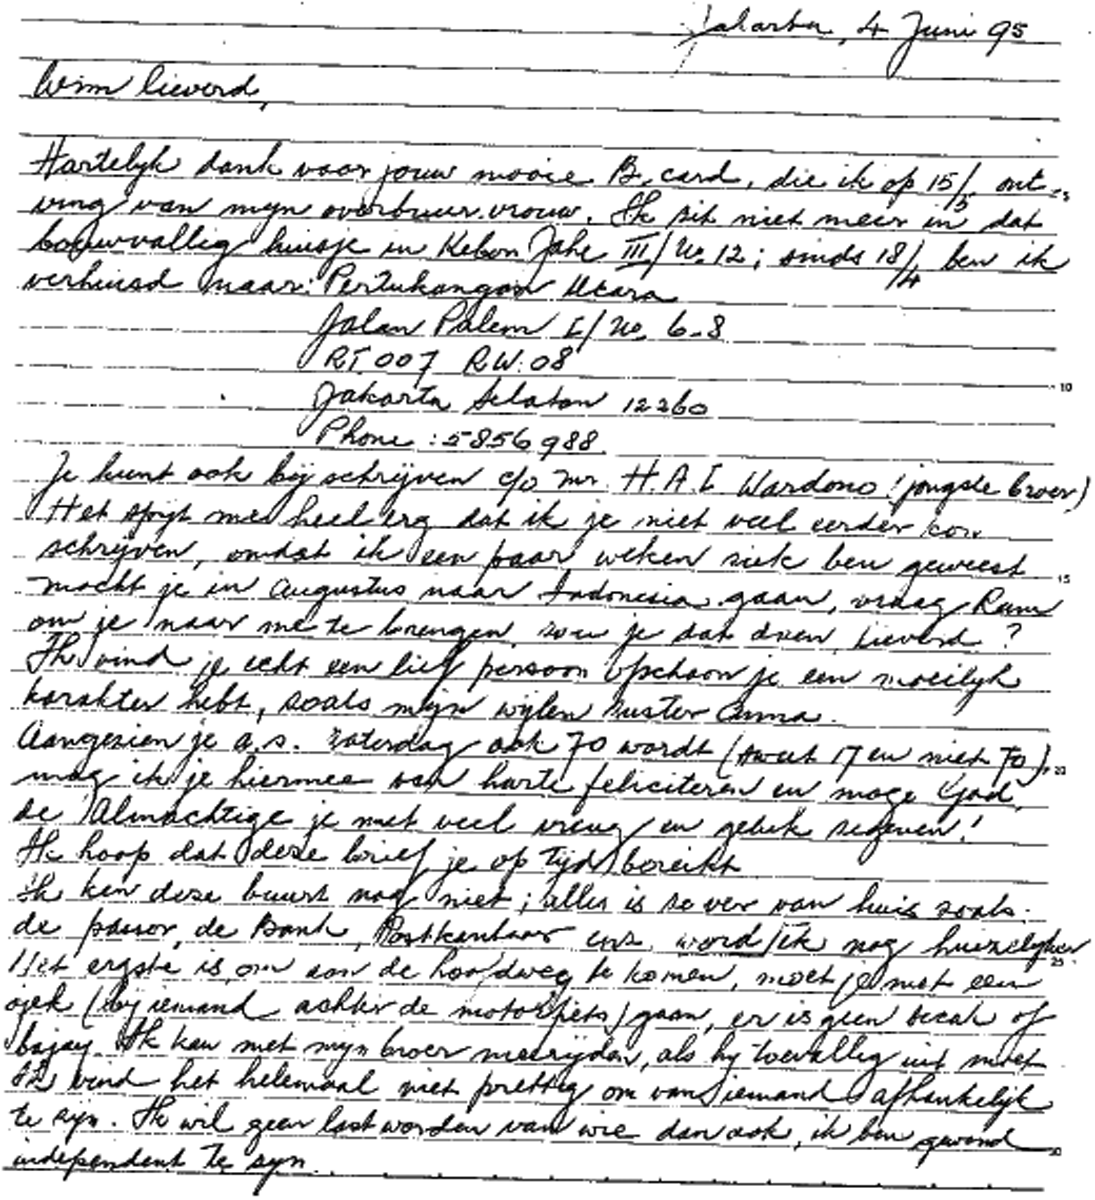 Jakarta, 4 Juni 95
Wim lieverd,
Hartelyk dank voor jouw mooie B. card, die ik op 15/5 ont-
ving van myn overbuurvrouw. Ik zit niet meer in dat
bouwvallig huisje in Kebon Jahe III/No. 12; sinds 18/4 ben ik
verhuisd naar: Pertukangan Utara
Jalan Palem I/No. 6-8
RT. 007 RW: 08
Jakarta Selatan 12260
Phone: 5856988
Je kunt ook bij schrijven c/o Mr. H.A.I. Wardono (jongste broer)
Het spijt me heel erg dat ik je niet veel eerder kon
schrijven, omdat ik een paar weken ziek ben geweest
mocht je in Augustus naar Indonesia gaan, vraag
om je naar me te brengen zou je dat doen, lieverd?
Ik vind je echt een lief persoon ofschoon je een moeilyk
karakter hebt, zoals mijn wijlen zuster Anna.
Aangezien je a.s. zaterdag ook 70 wordt (17 en niet 70),
mag ik je hiermee van harte feliciteren en moge God,
de Almachtige je met veel vreug en geluk zegenen!
Ik hoop dat deze brief je op tijd bereikt
Ik ken deze buurt nog niet; alles is te ver van huis zoals:
de passar, de Bank, Postkantoor enz. word ik nog huiselijker
Het ergste is, om aan de hoofdweg te komen, moet je met een
ojek (bij iemand achter de motorfiets) gaan, er is geen becak of
bajay. Ik kan met myn broer meerijden, als hy toevallig uit moet
Ik vind het helemaal niet prettig om van iemand afhankelijk
te zijn. Ik wil geen last worden van wie dan ook, ik ben gewend
independent te zyn.
5
10
15
20
25
30